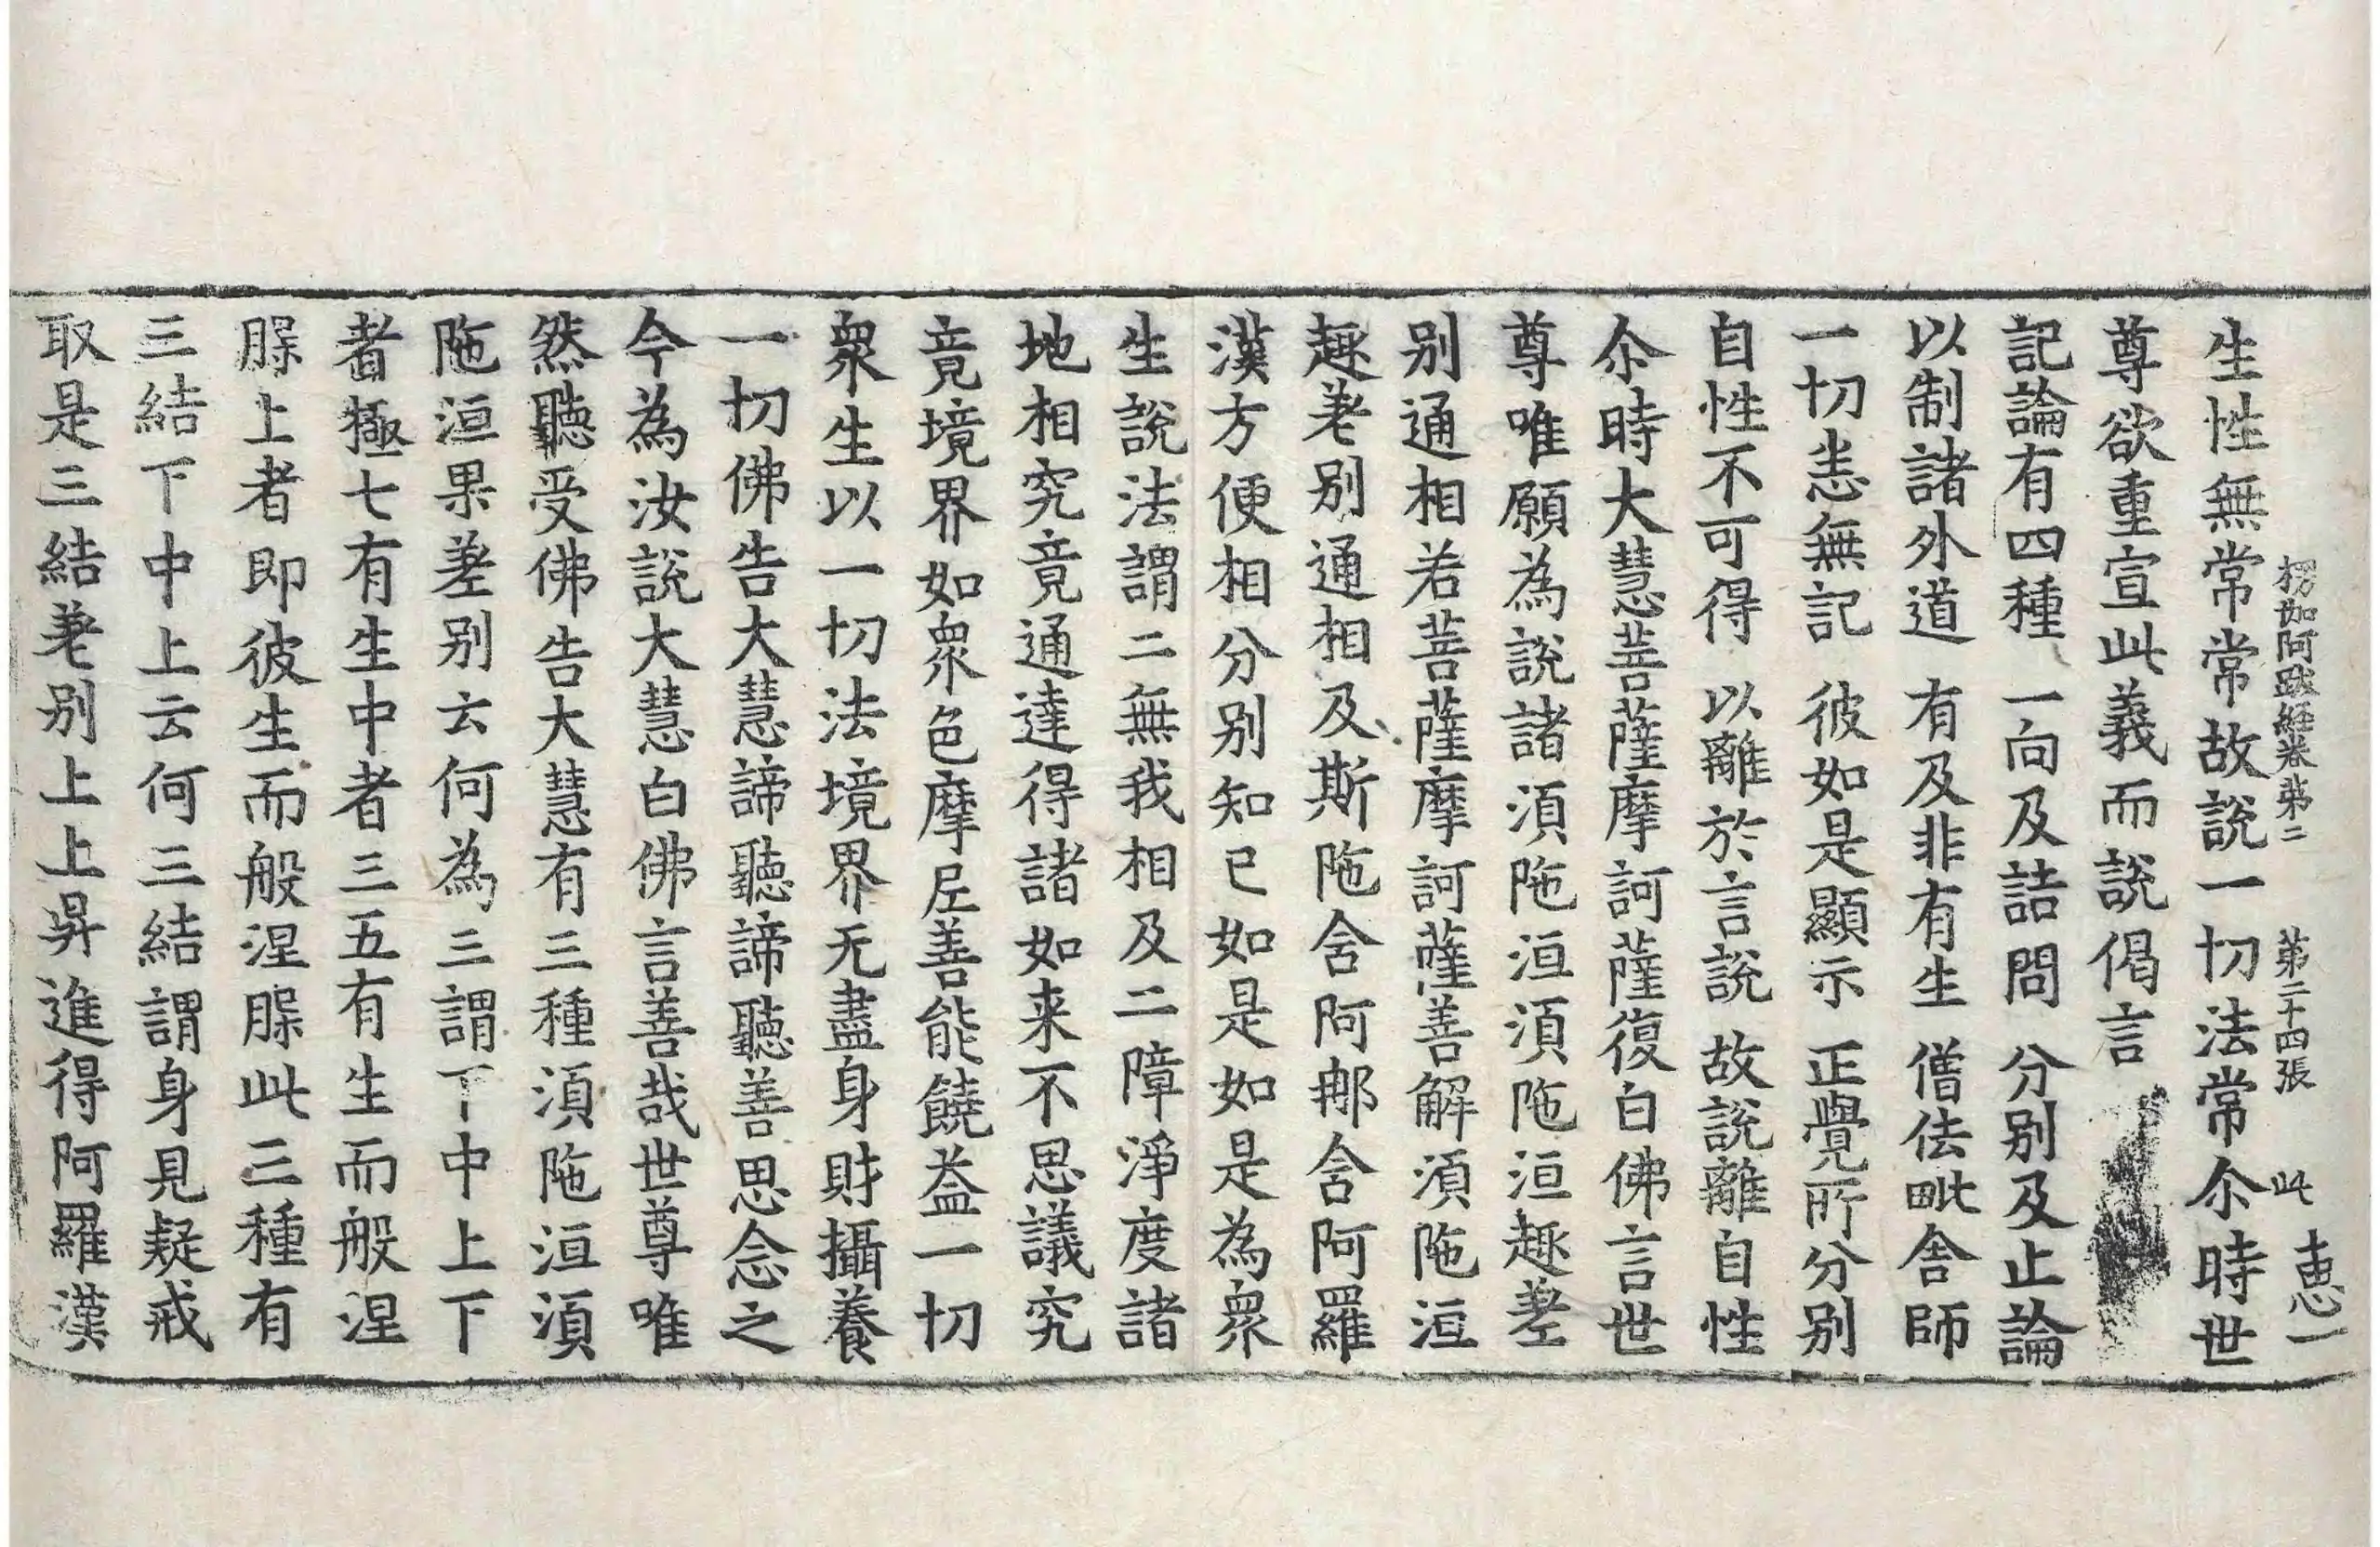 楞伽阿跋経卷苐二　苐二十四張　此　恵一
生性無常常故說一切法常尒時世
尊欲重宣此義而說偈言
記論有四種　一向及詰問　分别及止論
以制諸外道　有及非有生　僧佉毗舍師
一切悉無記　彼如是顯示　正覺所分别
自性不可得　以離於言說　故說離自性
尒時大慧菩薩摩訶薩復白佛言世
尊唯願為說諸須陁洹須陁洹趣差
别通相若菩薩摩訶薩善解須陁洹
趣差别通相及斯陁含阿那含阿羅
漢方便相分别知已如是如是為衆
生說法謂二無我相及二障淨度諸
地相究竟通達得諸如来不思議究
竟境界如衆色摩尼善能饒益一切
衆生以一切法境界无盡身財攝養
一切佛告大慧諦聽諦聽善思念之
今為汝說大慧白佛言善哉世尊唯
然聽受佛告大慧有三種須陁洹須
陁洹果差别云何為三謂下中上下
者極七有生中者三五有生而般涅
槃上者即彼生而般涅槃此三種有
三結下中上云何三結謂身見疑戒
取是三結差别上上昇進得阿羅漢